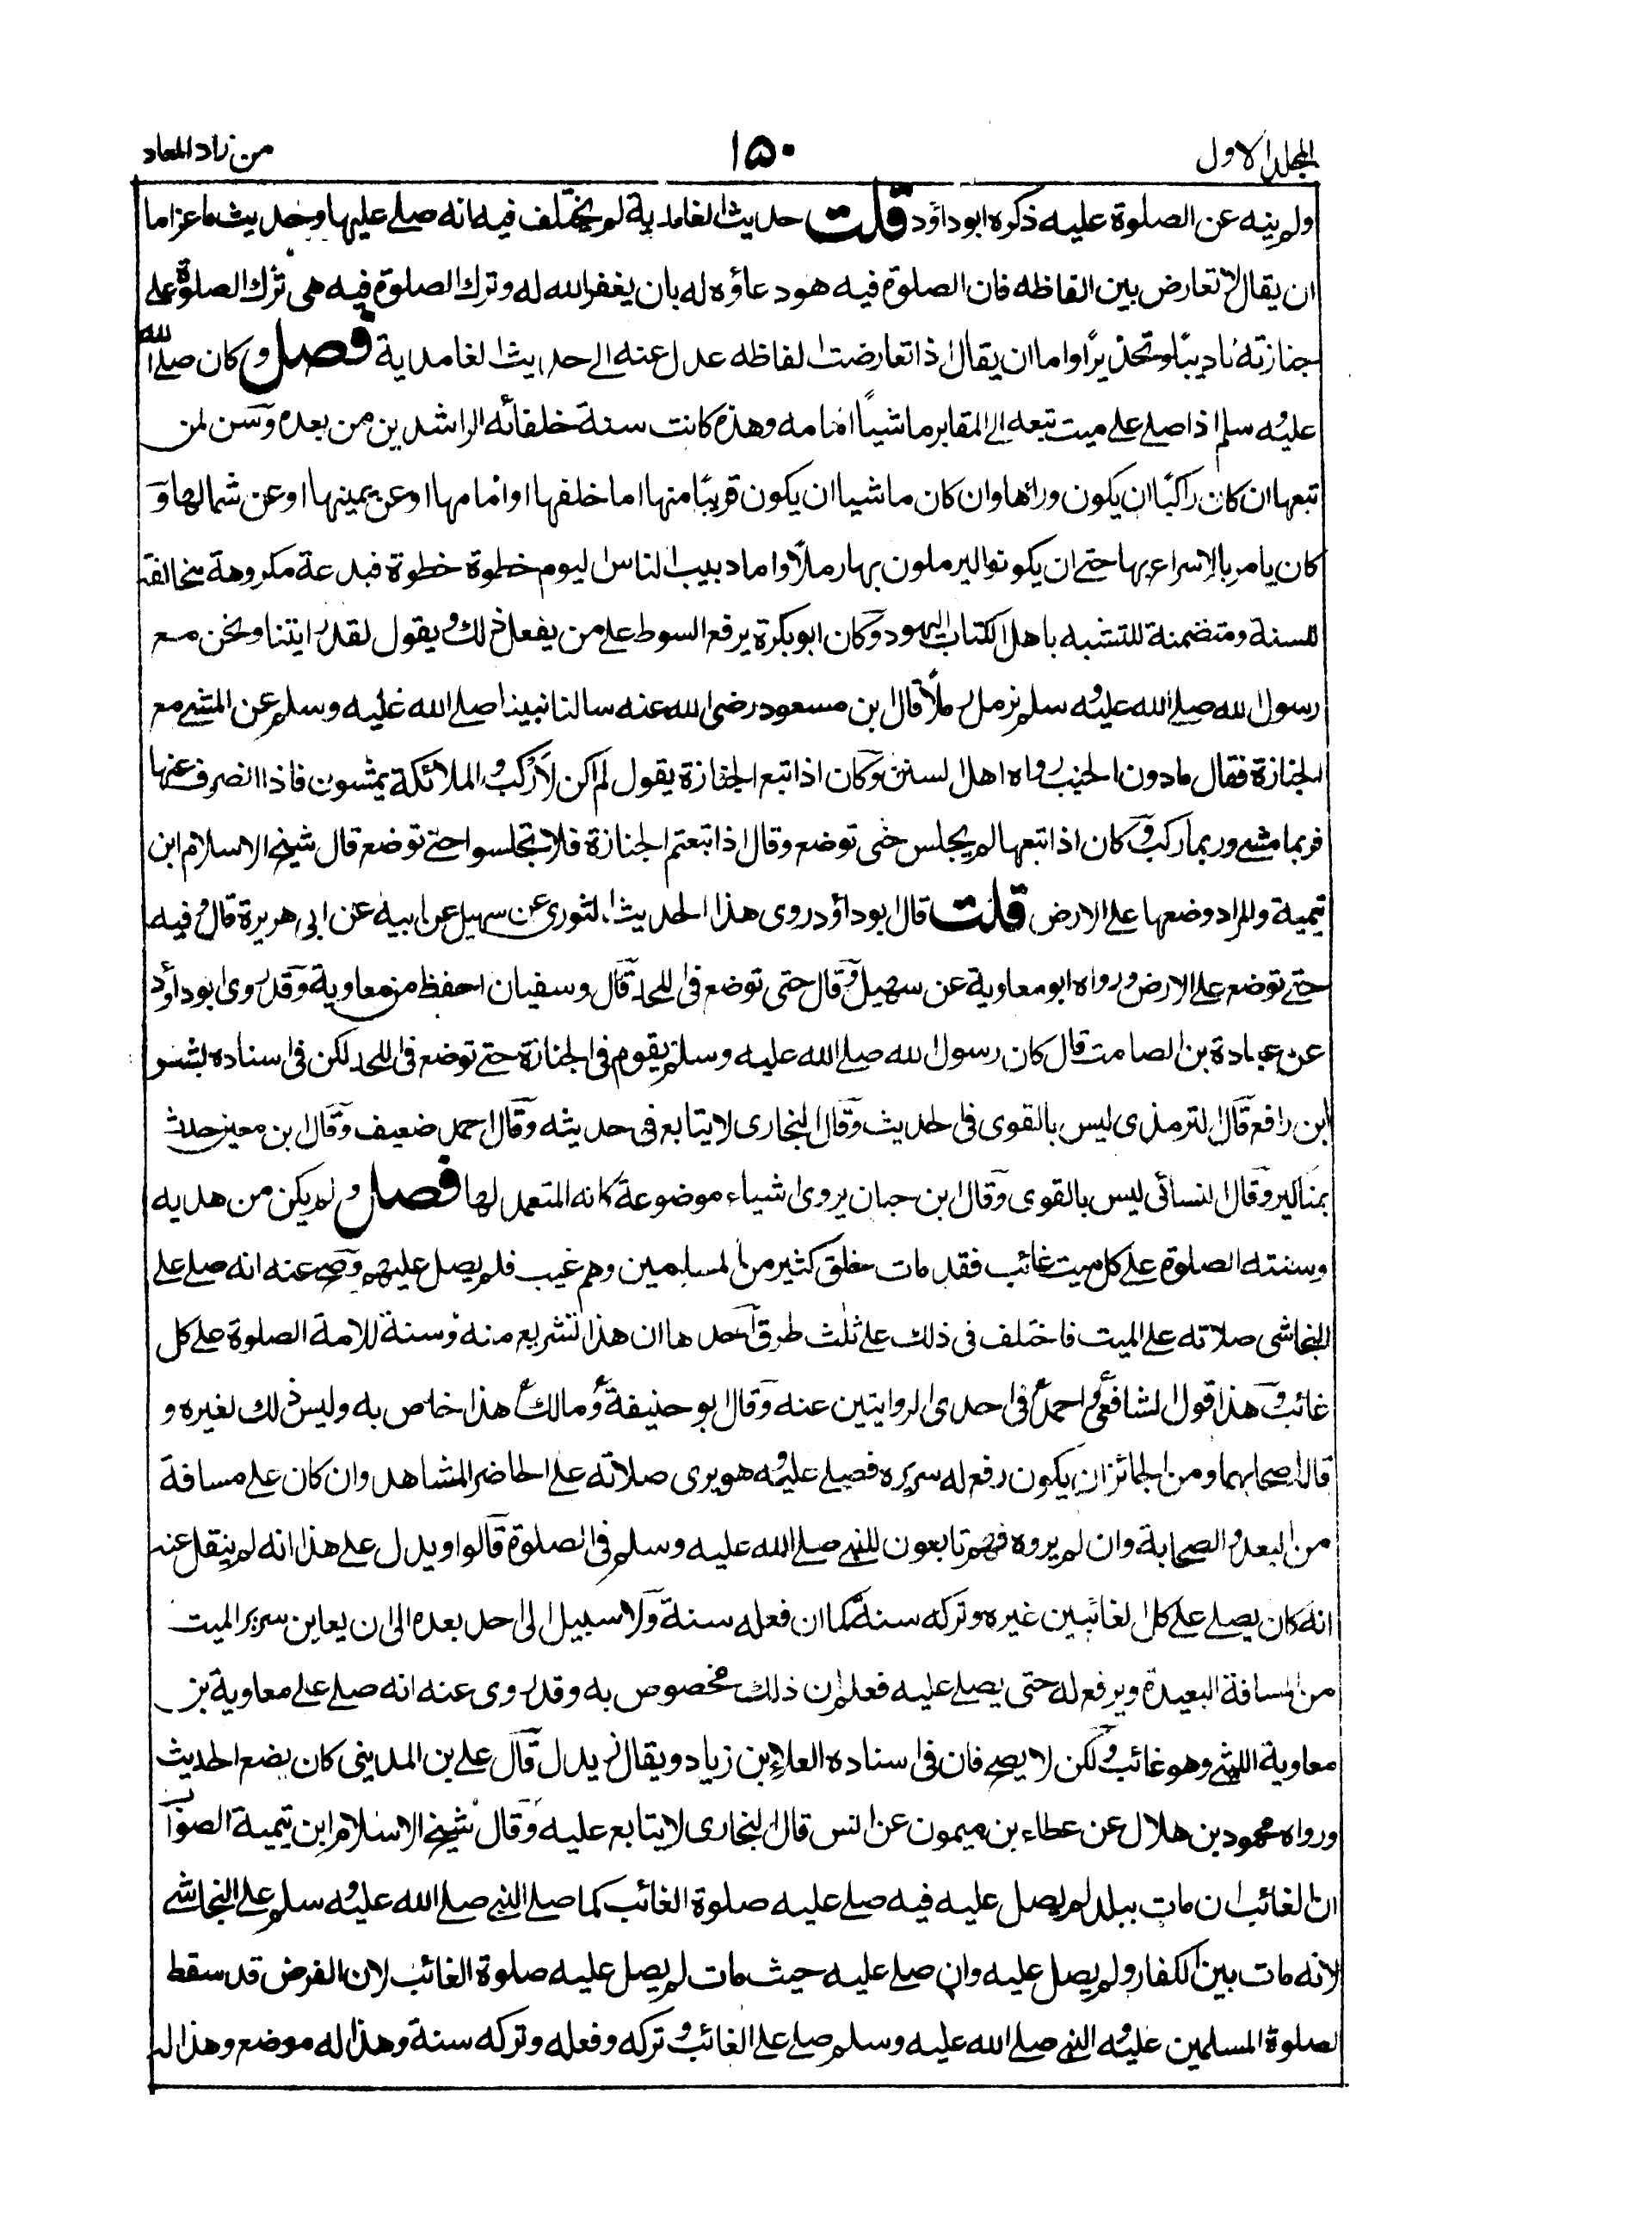 المجلد الاول
١٥٠
من زاد المعاد
ولم ينه عن الصلوة عليه ذكره ابوداؤد قلت حديث الغامدية لم يختلف فيه انه صلے عليها وحديث ماعز اما
ان يقال لا تعارض بين الفاظه فان الصلوة فيه هو دعاؤه له بان يغفر الله له وترك الصلوة فيه هى ترك الصلوة على
جنازته تاديبًا وتحذيرًا واما ان يقال اذا تعارضت الفاظه عدل عنه الے حديث الغامدية فصل وكان صلے الله
عليه وسلم اذا صلے على ميت تبعه الے المقابر ماشيًا امامه وهذه كانت سنة خلفائه الراشدين من بعده وسن لمن
تبعها ان كان راكبًا ان يكون ورائها وان كان ماشيا ان يكون قريبًا منها اما خلفها او امامها او عن يمينها او عن شمالها و
كان يامر بالاسراع بها حتے ان يكونوا ليرملون بها رملًا واما دبيب الناس اليوم خطوة خطوة فبدعة مكروهة مخالفة
للسنة ومتضمنة للتشبه باهل الكتاب اليهود وكان ابو بكرة يرفع السوط على من يفعل ذلك ويقول لقد رايتنا ونحن مع
رسول الله صلے الله عليه وسلم نرمل رملًا قال ابن مسعود رضى الله عنه سالنا نبينا صلے الله عليه وسلم عن المشے مع
الجنازة فقال مادون الخبب رواه اهل السنن وكان اذا تبع الجنازة يقول لم اكن لاركب والملائكة يمشون فاذا انصرف عنها
فربما مشے وربما ركب وكان اذا تبعها لم يجلس حتى توضع وقال اذا تبعتم الجنازة فلا تجلسوا حتے توضع قال شيخ الاسلام ابن
تيمية والمراد وضعها على الارض قلت قال ابوداؤد روى هذا الحديث الثورى عن سهيل عن ابيه عن ابى هريرة قال وفيه
حتے توضع على الارض ورواه ابو معاوية عن سهيل وقال حتى توضع فى اللحد قال وسفيان احفظ من معاوية وقد روى ابوداؤد
عن عبادة بن الصامت قال كان رسول الله صلے الله عليه وسلم يقوم فى الجنازة حتے توضع فى اللحد لكن فى اسناده بشر
ابن رافع قال الترمذى ليس بالقوى فى الحديث وقال البخارى لا يتابع فى حديثه وقال احمد ضعيف وقال ابن معين حدث
بمناكير وقال النسائى ليس بالقوى وقال ابن حبان يروى اشياء موضوعة كانه المتعمد لها فصل ولم يكن من هديه
وسنته الصلوة على كل ميت غائب فقد مات خلق كثير من المسلمين وهم غيب فلم يصل عليهم وصح عنه انه صلے على
النجاشى صلاته على الميت فاختلف فى ذلك على ثلث طرق احدها ان هذا تشريع منه وسنة للامة الصلوة على كل
غائب وهذا قول الشافعى واحمد فى احدى الروايتين عنه وقال ابو حنيفة ومالك هذا خاص به وليس ذلك لغيره و
قال اصحابهما ومن الجائز ان يكون رفع له سريره فصلے عليه وهو يرى صلاته على الحاضر المشاهد وان كان على مسافة
من البعد والصحابة وان لم يروه فهم تابعون للنبے صلے الله عليه وسلم فى الصلوة قالوا ويدل على هذا انه لم ينقل عنه
انه كان يصلے على كل الغائبين غيره وتركه سنة كما ان فعله سنة ولا سبيل الى احد بعده الى ان يعاين سرير الميت
من المسافة البعيدة ويرفع له حتى يصلے عليه فعلم ان ذلك مخصوص به وقد روى عنه انه صلے على معاوية بن
معاوية الليثے وهو غائب ولكن لا يصح فان فى اسناده العلاء بن زياد ويقال زيدل قال على بن المدينى كان يضع الحديث
ورواه محمود بن هلال عن عطاء بن ميمون عن انس قال البخارى لا يتابع عليه وقال شيخ الاسلام ابن تيمية الصواب
ان الغائب ان مات ببلد لم يصل عليه فيه صلے عليه صلوة الغائب كما صلے النبے صلے الله عليه وسلم على النجاشے
لانه مات بين الكفار ولم يصل عليه وان صلے عليه حيث مات لم يصل عليه صلوة الغائب لان الفرض قد سقط
لصلوة المسلمين عليه والنبے صلے الله عليه وسلم صلے على الغائب وتركه وفعله وتركه سنة وهذا له موضع وهذا له